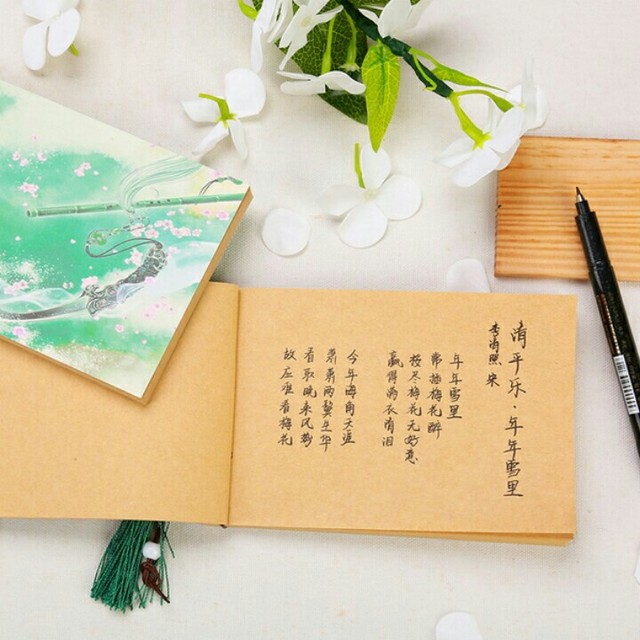 清平乐·年年雪里
李清照 宋
年年雪里
常插梅花醉
挼尽梅花无好意
赢得满衣清泪
今年海角天涯
萧萧两鬓生华
看取晚来风势
故应难看梅花